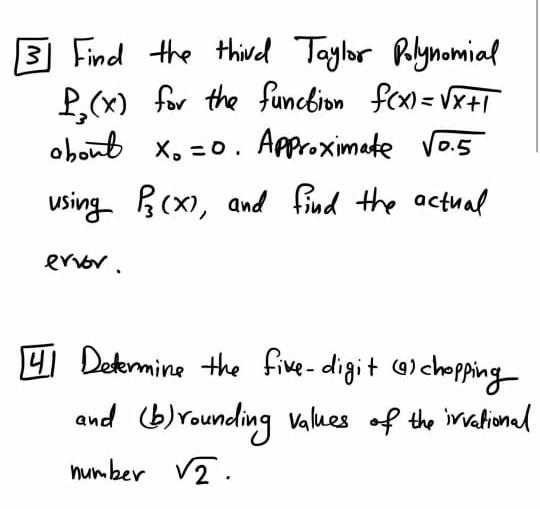 3 Find the third Taylor Polynomial
P₃(x) for the function f(x) = √x+1
about x₀ = 0. Approximate √0.5
using P₃(x), and find the actual
error.
4 Determine the five-digit (a) chopping
and (b) rounding values of the irrational
number √2.